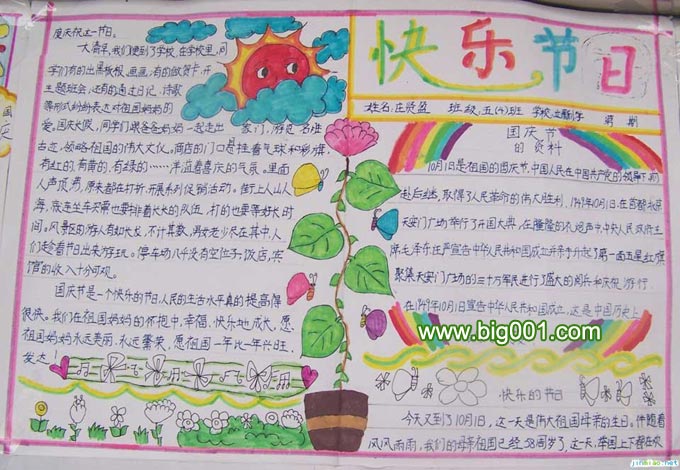 快乐节日
姓名:庄贤盈 班级:五(4)班 学校:
度庆祝这一节日。
大清早,我们便到了学校,在学校里,同
学们有的出黑板报,画画,有的做贺卡,开
主题班会,还有的通过日记、诗歌
等形式纷纷表达对祖国妈妈的
爱。国庆大假,同学们跟爸爸妈妈一起走出 家门,游览名胜
古迹,领略祖国的伟大文化。商店的门口悬挂着气球和彩旗,
有红的,有黄的,有绿的……洋溢着喜庆的气氛。里面
人声顶沸,原来都在打折,开展系列促销活动。街上人山人
海,就连坐车买票也要排着长长的队伍,打的也要等好长时
间。风景区的游人有如长龙,不计其数,男女老少乐在其中,人
们趁着节日出来游玩。停车场几乎没有空位子,饭店,宾
馆的收入十分可观。
国庆节是一个快乐的节日,人民的生活水平真的提高得
很快。我们在祖国妈妈的怀抱中,幸福、快乐地成长,愿
祖国妈妈永远美丽,永远繁荣,愿祖国一年比一年兴旺
发达!
国庆节
的资料
10月1日是祖国的国庆节,中国人民在中国共产党的领导下,前
赴后继,取得了人民革命的伟大胜利,1949年10月1日,在首都北京
天安门广场举行了开国大典,在隆隆的礼炮声中,中央人民政府主
席毛泽东庄严宣告中华人民共和国成立,并亲手升起了第一面五星红旗,
聚集天安门广场的三十万军民进行了盛大的阅兵和庆祝游行.
在1949年10月1日宣告中华人民共和国成立,这是中国历史上
www.big001.com
快乐的节日
今天又到了10月1日,这一天是伟大祖国母亲的生日。伴随着
风风雨雨,我们的母亲祖国已经58周岁了,这一天,举国上下都在欢
jinbiao.net